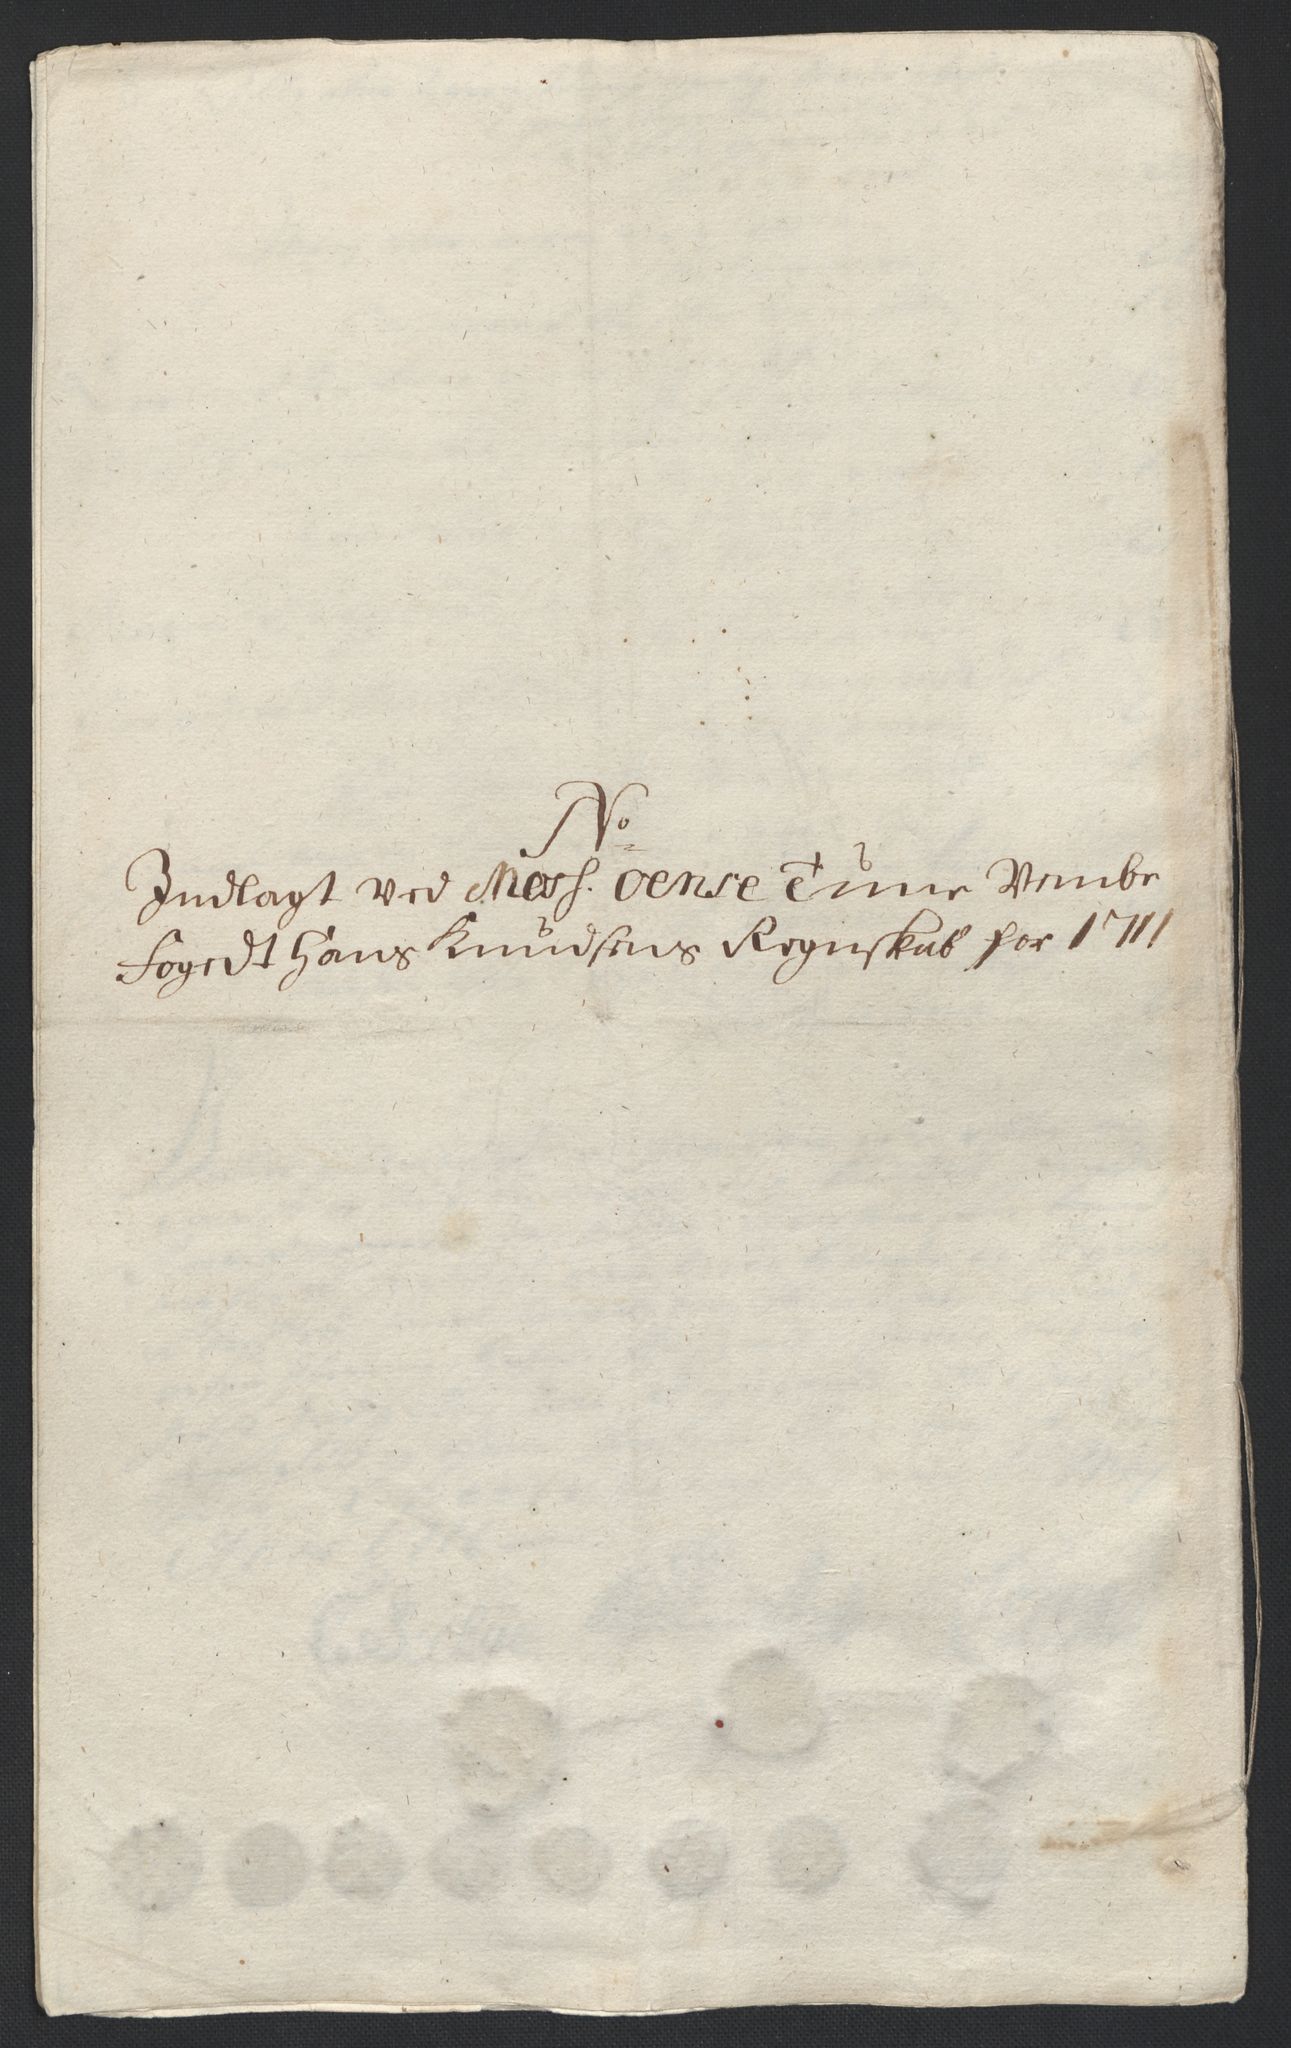 No
Indlagt ved Mosh. oense Tune Vembe
fogedt hans Knudsens Regnskab for 1711